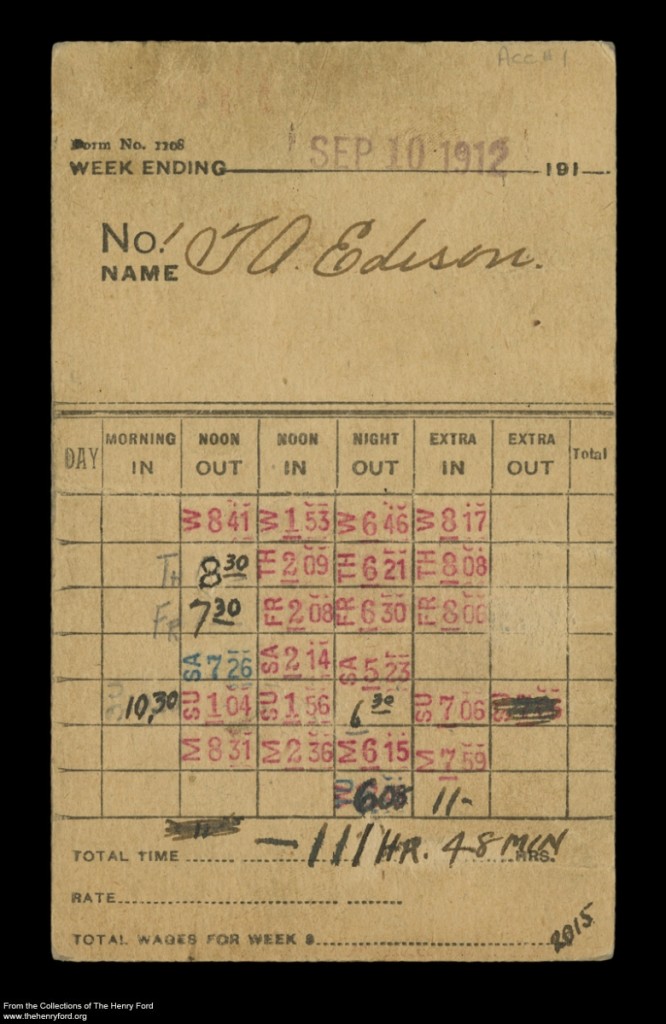 Acc# 1
Form No. 1108
WEEK ENDING SEP 10 1912 191
No. 1
NAME T A. Edison.
DAY MORNING IN NOON OUT NOON IN NIGHT OUT EXTRA IN EXTRA OUT Total
W 8 41 W 1 53 W 6 46 W 8 17
TH 8 30 TH 2 09 TH 6 21 TH 8 08
FR 7 30 FR 2 08 FR 6 30 FR 8 06
SA 7 26 SA 2 14 SA 5 23
SU 10,30 SU 1 04 SU 1 56 6 30 SU 7 06
M 8 31 M 2 36 M 6 15 M 7 59
6 08 11-
TOTAL TIME - 111 HR. 48 MIN HRS.
RATE
TOTAL WAGES FOR WEEK $ 2015
From the Collections of The Henry Ford
www.thehenryford.org